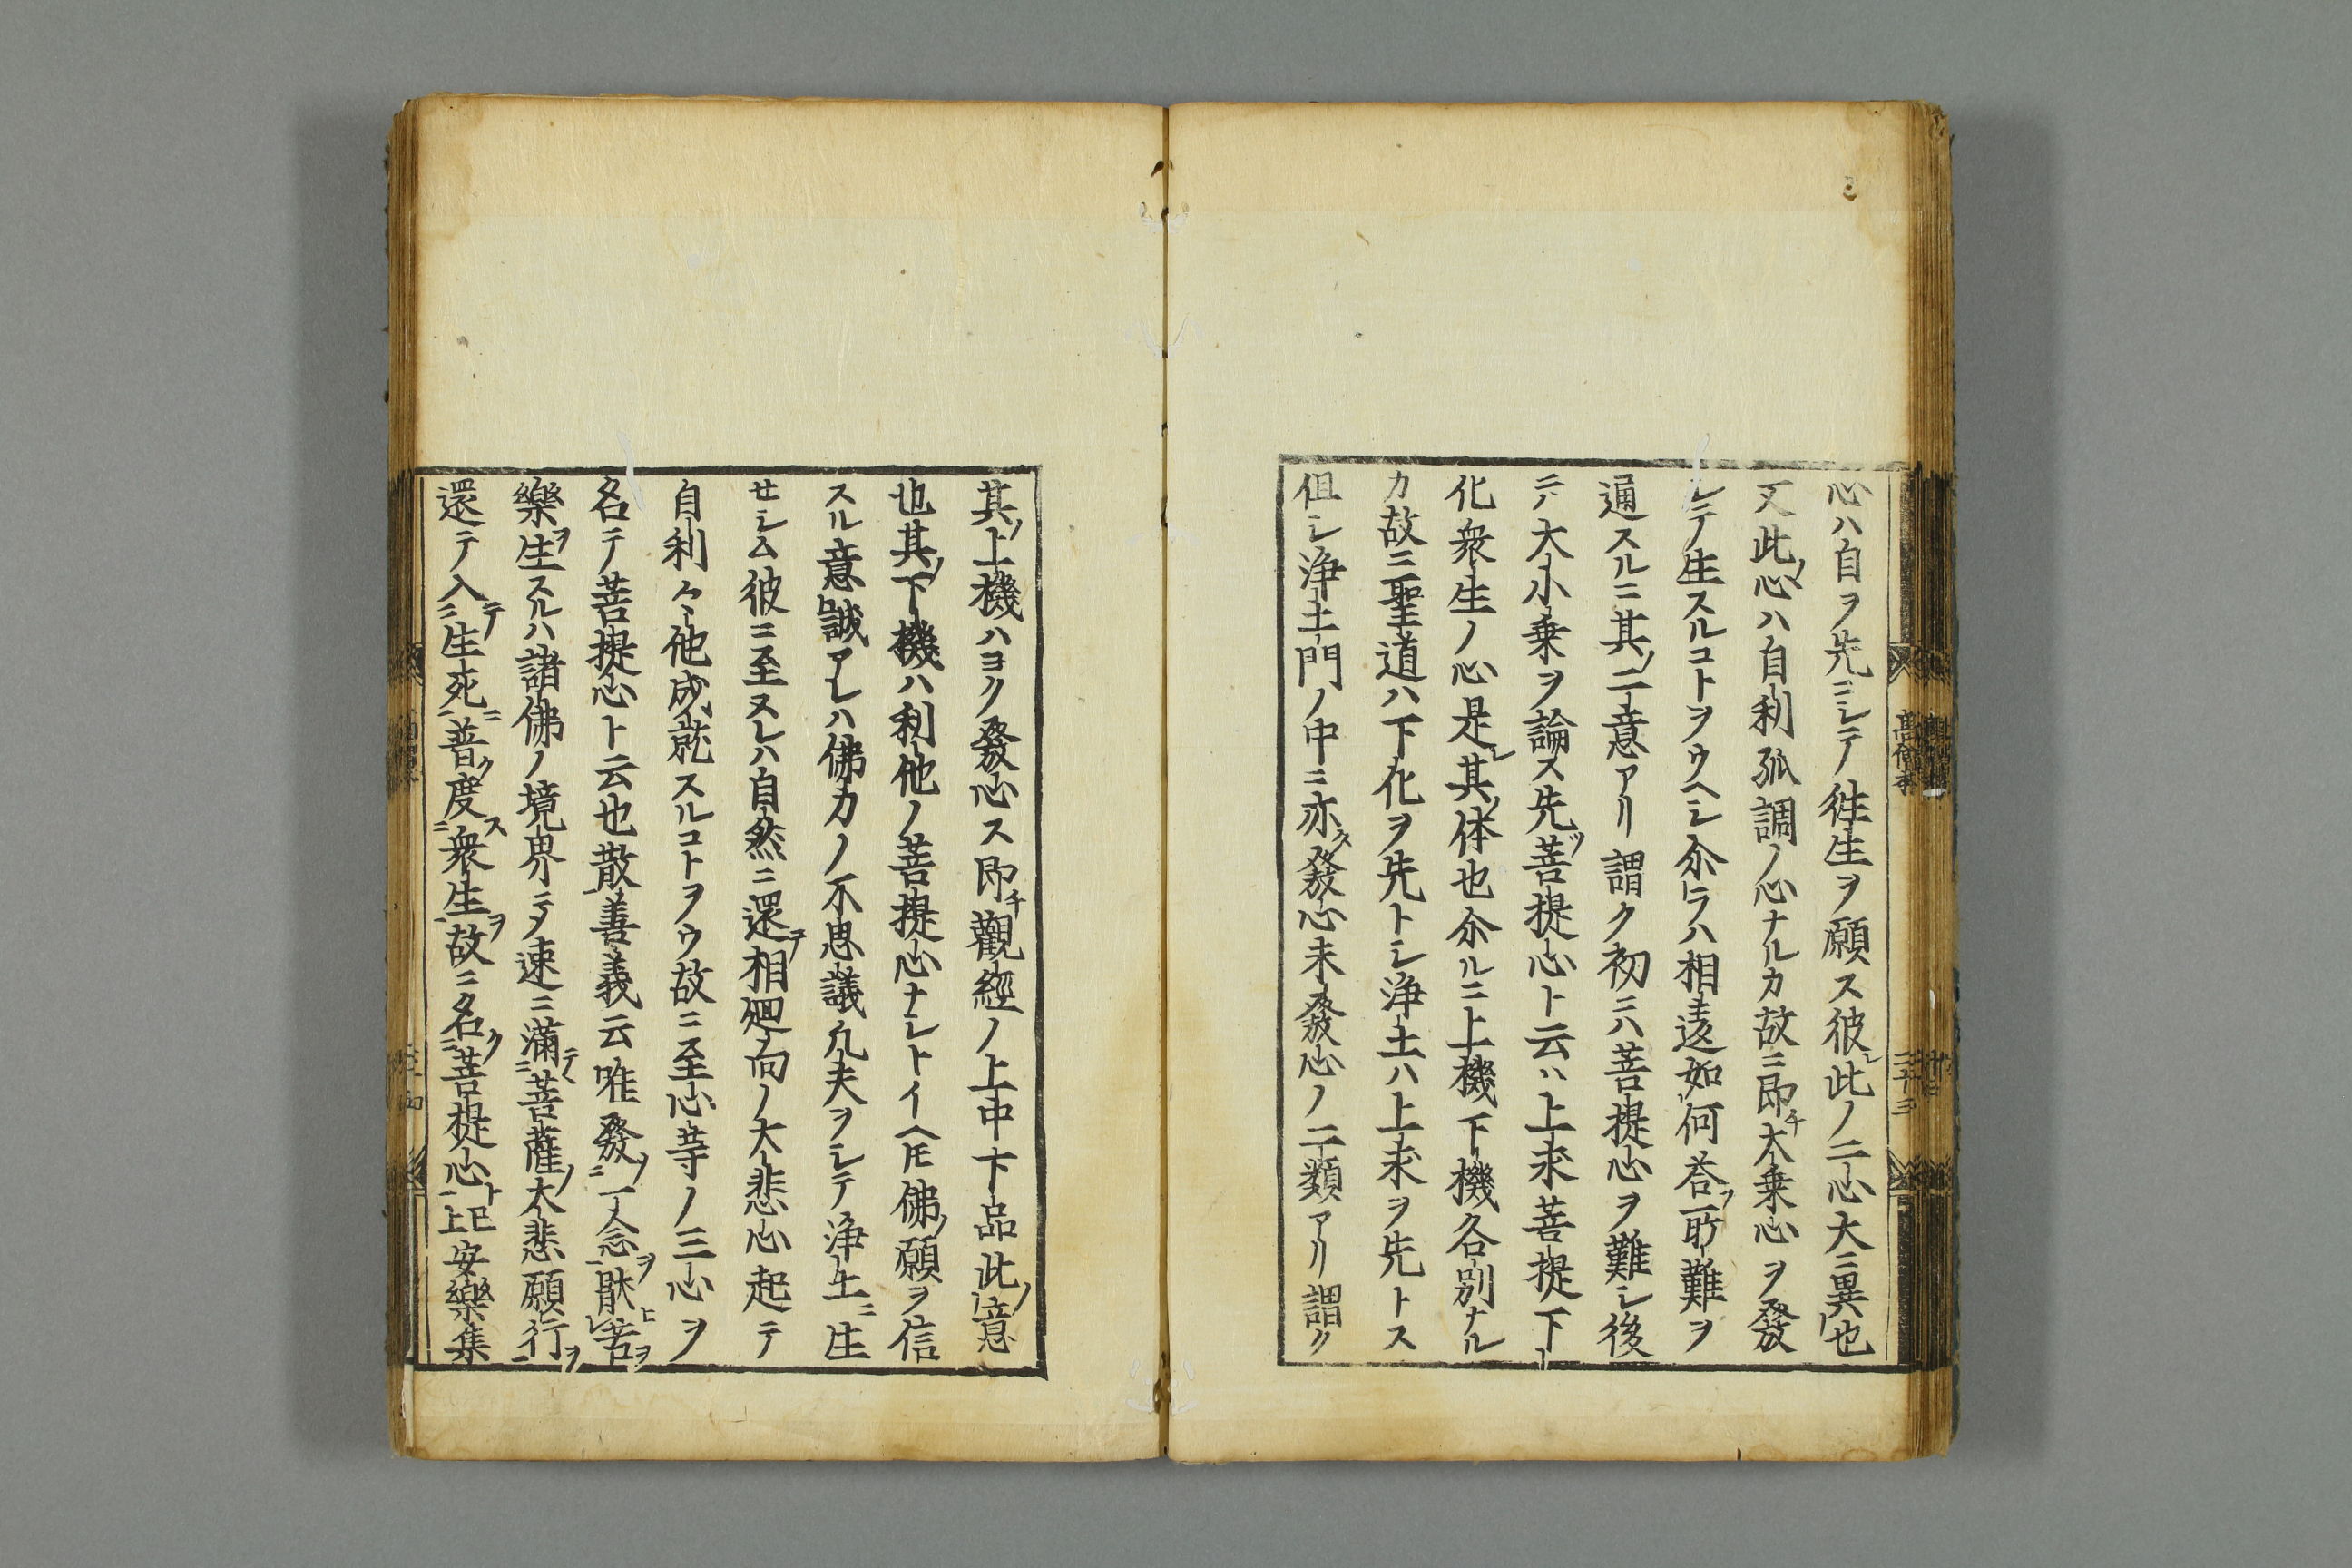 心ハ自ヲ先ニシテ徃生ヲ願ス彼レ此ノ二心大ニ異也
又此ノ心ハ自利孤調ノ心ナルカ故ニ即チ大乗心ヲ發
シテ生スルコトヲウヘシ尒ラハ相違如何荅フ所難ヲ
通スルニ其ノ二意アリ謂ク初ニハ菩提心ヲ難シ後
ニハ大小乗ヲ論ス先ツ菩提心ト云ハ上求菩提下
化衆生ノ心是レ其ノ体也尒ルニ上機下機各別ナル
カ故ニ聖道ハ下化ヲ先トシ浄土ハ上求ヲ先トス
但シ浄土門ノ中ニ亦タ發心未發心ノ二類アリ謂ク
其ノ上機ハヨク發心ス即チ觀經ノ上中下品此ノ意
也其ノ下機ハ利他ノ菩提心ナシトイヘ𪜈佛ノ願ヲ信
スル意誠アレハ佛力ノ不思議凢夫ヲシテ浄土ニ生
せシム彼ニ至ヌレハ自然ニ還テ相廻向ノ大悲心起テ
自利々他成就スルコトヲウ故ニ至心等ノ三心ヲ
名テ菩提心ト云也散善義云唯發ノ一念ヲ猒ヒ苦ヲ
樂ヲ生スルハ諸佛ノ境界ニテタ速ニ滿テ菩薩ノ大悲願行ヲ
還テ入テ生死ニ普ク度ス衆生ヲ故ニ名ク菩提心ト已上安樂集